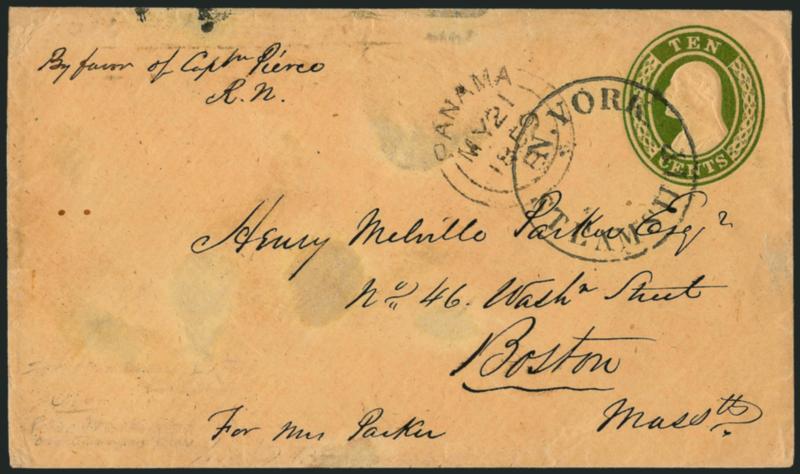 By favor of Captn Pierce
R.N.
PANAMA
MY 21
N. YORK
STEAMSHIP
TEN
CENTS
Henry Melville Parker Esqr
No 46. Washn Street
Boston
Masstts
For Mrs Parker